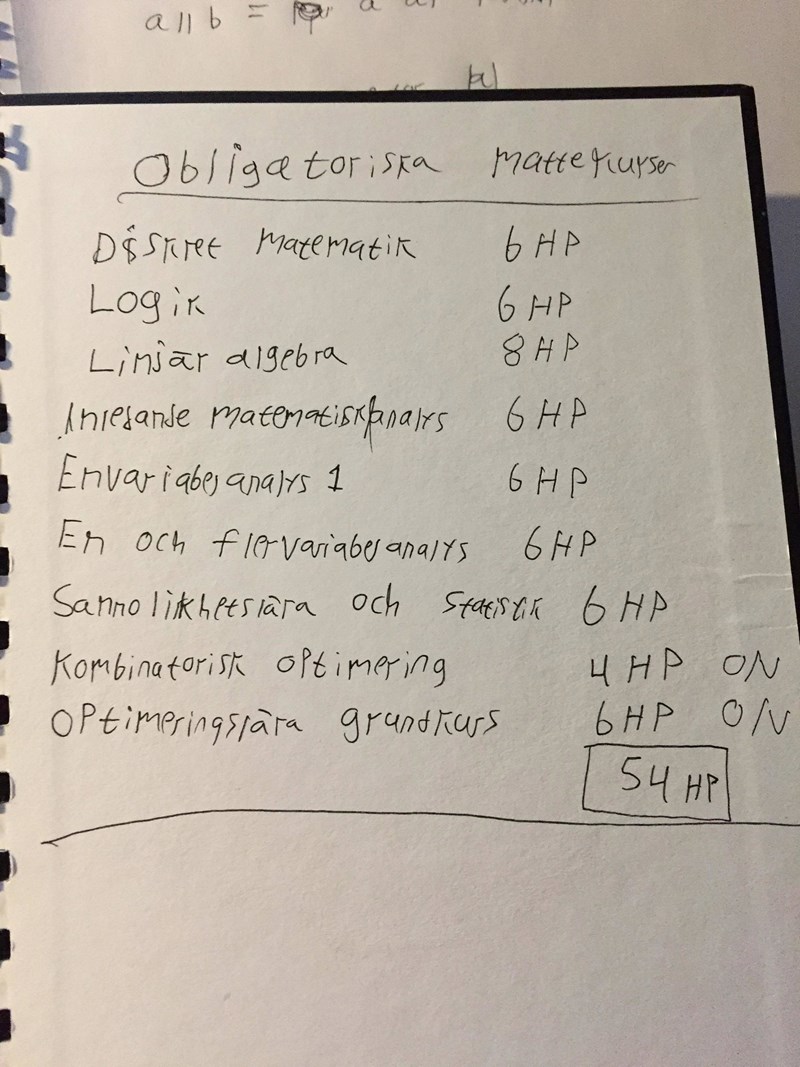 a || b =
Obligatoriska mattekurser
Diskret matematik 6 HP
Logik 6 HP
Linjär algebra 8 HP
Inledande matematisk analys 6 HP
Envariabelanalys 1 6 HP
En och flervariabelanalys 6 HP
Sannolikhetslära och statistik 6 HP
Kombinatorisk optimering 4 HP O/V
Optimeringslära grundkurs 6 HP O/V
54 HP